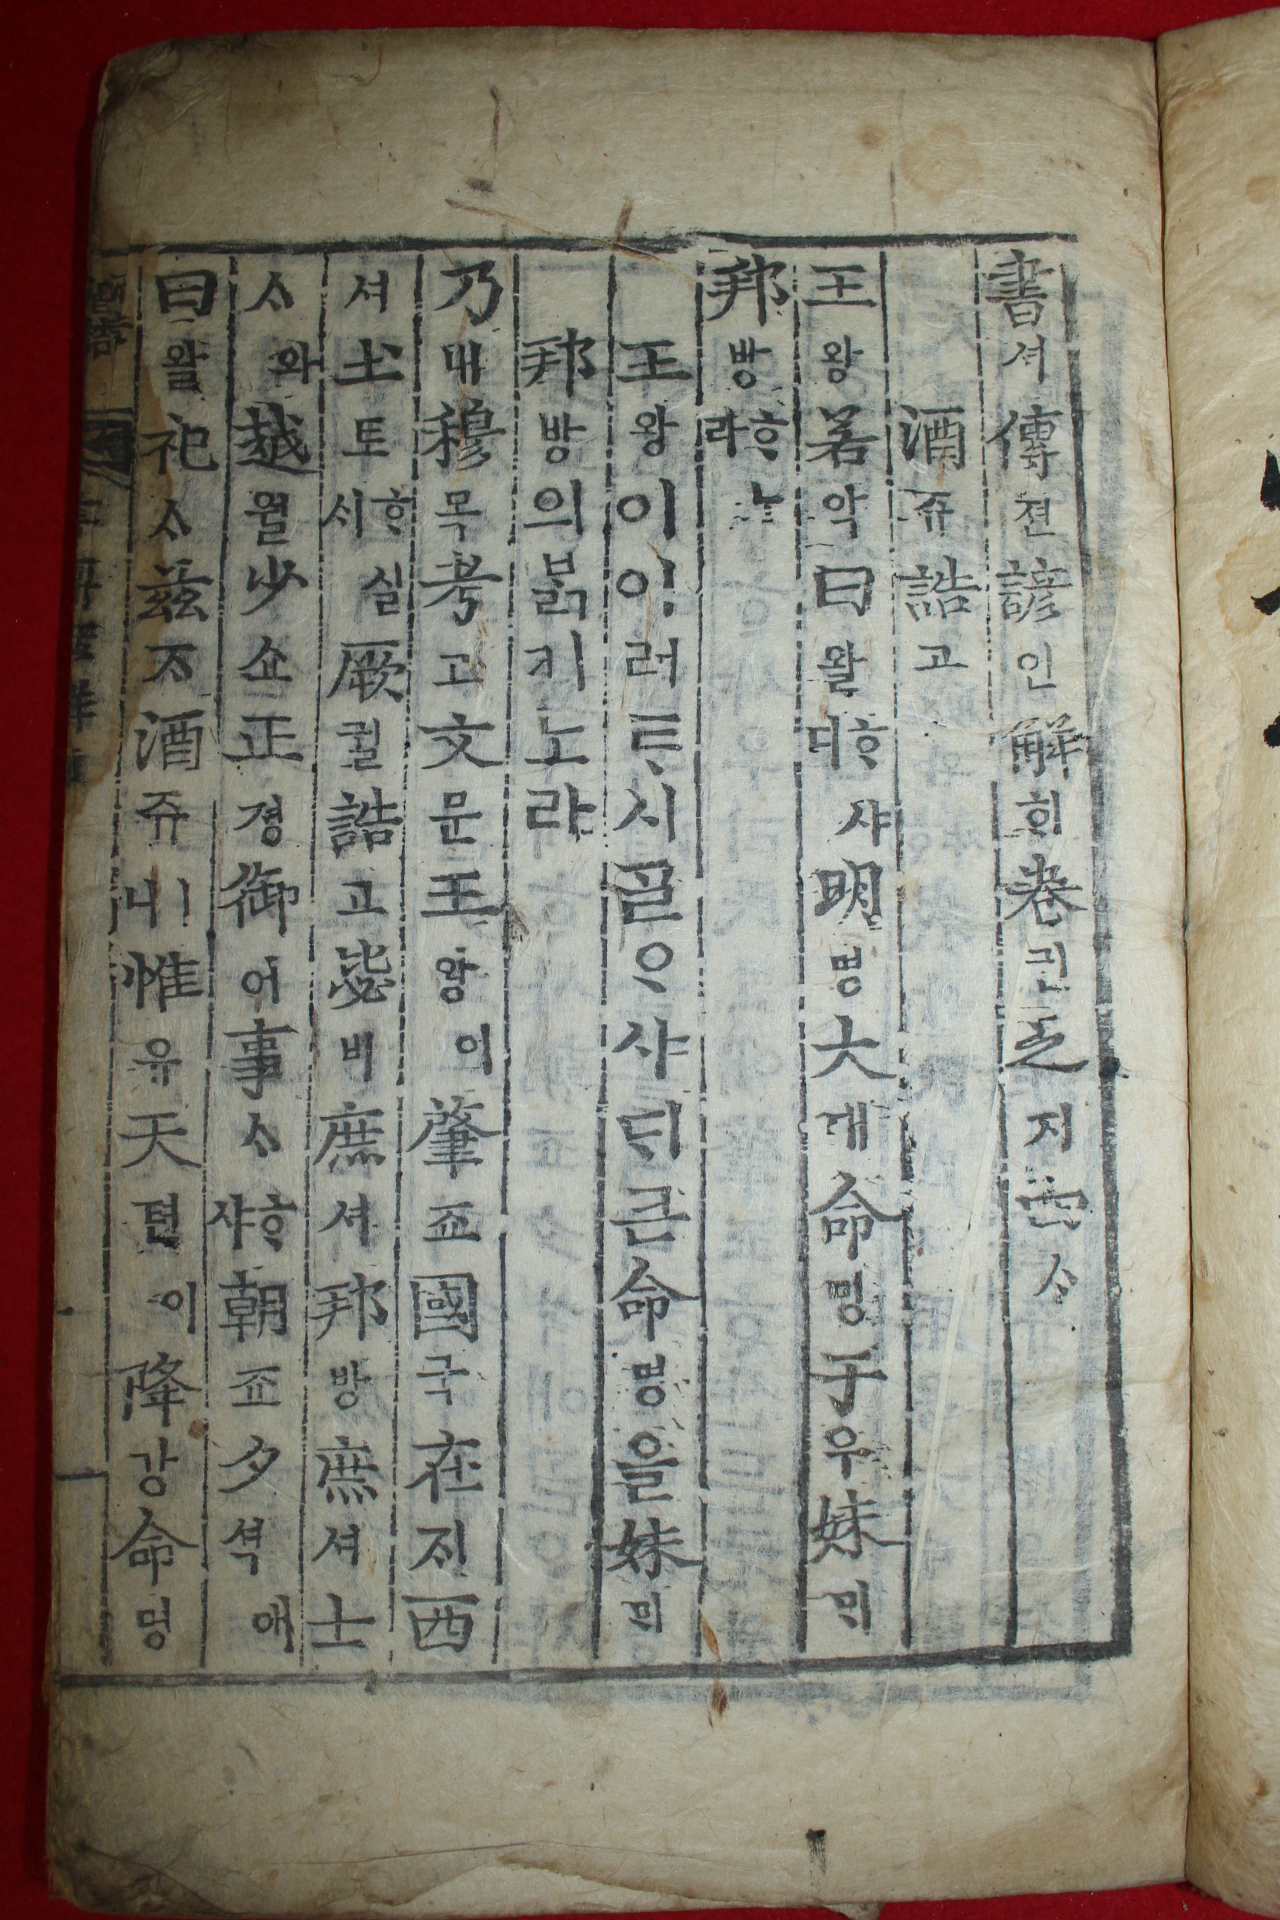 書셔傳젼諺인解ᄒᆡ卷권之지四ᄉᆞ
酒쥬誥고
王왕若약曰왈ᄒᆞ샤ᄃᆡ明명大대命명于우妹ᄆᆡ
邦방ᄒᆞ노라
王왕이이러ᄐᆞ시ᄀᆞᆯᄋᆞ샤ᄃᆡ큰命명을妹ᄆᆡ
邦방의ᄇᆞᆰ키노라
乃내穆목考고文문王왕이肇죠國국在ᄌᆡ西
셔土토ᄒᆞ실ᄉᆡ厥궐誥고毖비庶셔邦방庶셔士
ᄉᆞ와越월少쇼正졍御어事ᄉᆞᄒᆞ샤朝죠夕셕애
曰왈祀ᄉᆞ玆ᄌᆞ酒쥬ㅣ니惟유天텬이降강命명